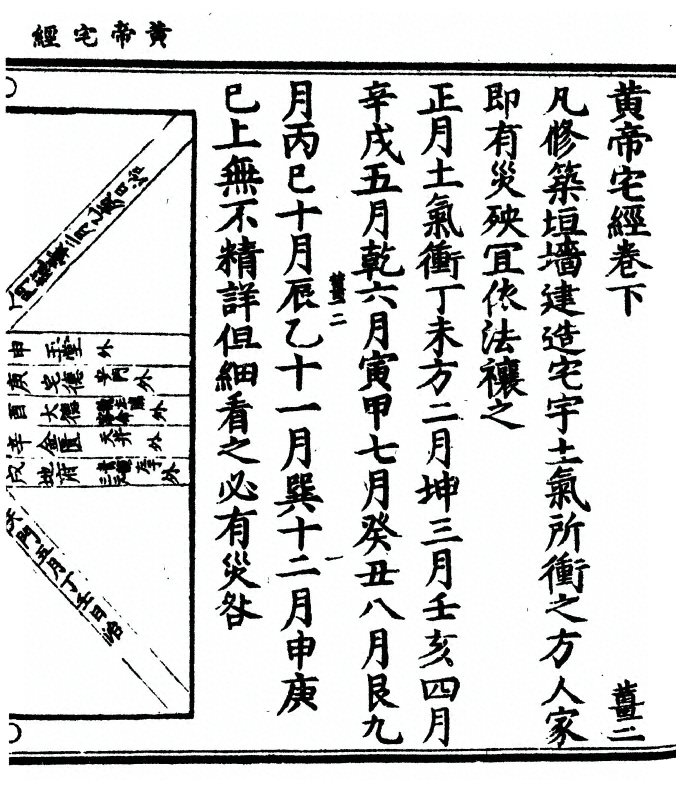 黃帝宅經
黃帝宅經卷下
薑二
凡修築垣墻建造宅宇土氣所衝之方人家
即有災殃宜依法禳之
正月土氣衝丁未方二月坤三月壬亥四月
辛戌五月乾六月寅甲七月癸丑八月艮九
薑二
月丙巳十月辰乙十一月巽十二月申庚
巳上無不精詳但細看之必有災咎
申 玉堂 外
庚 宅德 外
酉 大德 外
辛 金匱 天井 外
戌 地府 外